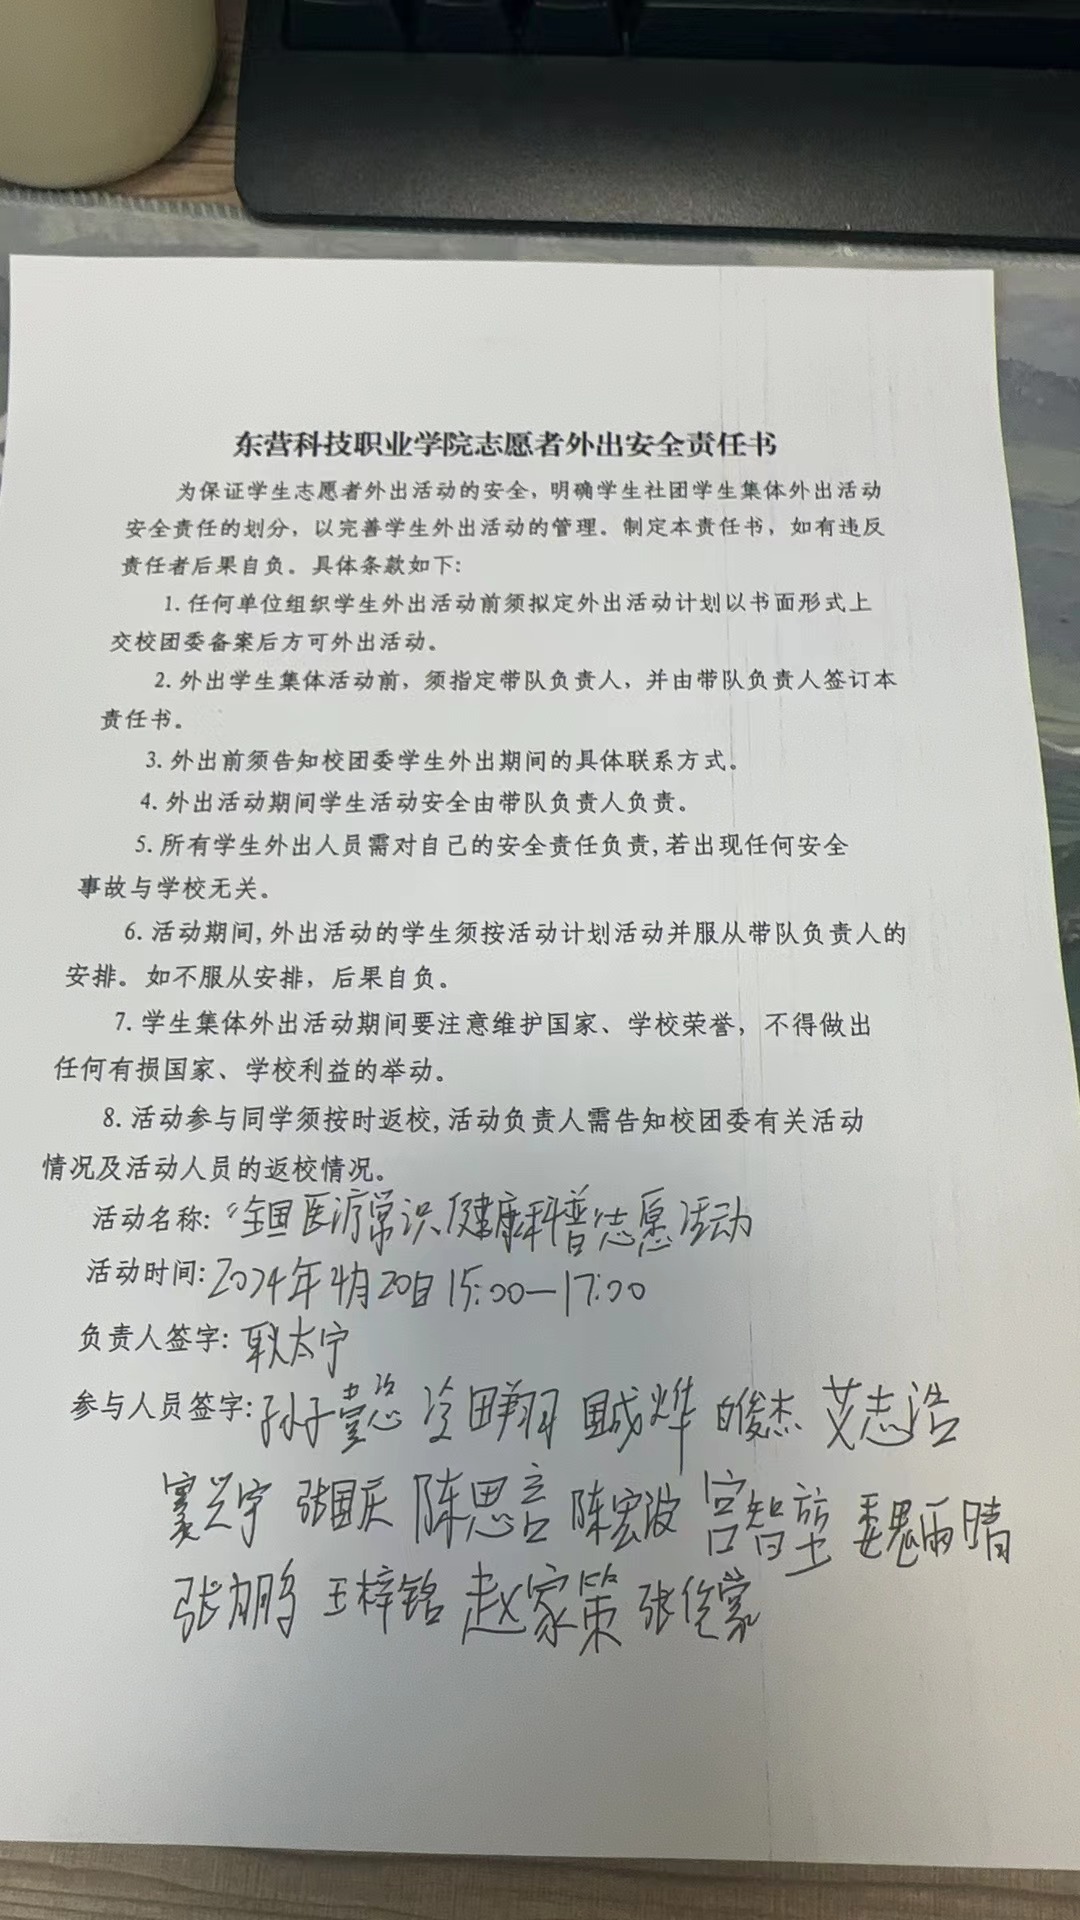 东营科技职业学院志愿者外出安全责任书
为保证学生志愿者外出活动的安全，明确学生社团学生集体外出活动
安全责任的划分，以完善学生外出活动的管理。制定本责任书，如有违反
责任者后果自负。具体条款如下：
1. 任何单位组织学生外出活动前须拟定外出活动计划以书面形式上
交校团委备案后方可外出活动。
2. 外出学生集体活动前，须指定带队负责人，并由带队负责人签订本
责任书。
3. 外出前须告知校团委学生外出期间的具体联系方式。
4. 外出活动期间学生活动安全由带队负责人负责。
5. 所有学生外出人员需对自己的安全责任负责，若出现任何安全
事故与学校无关。
6. 活动期间，外出活动的学生须按活动计划活动并服从带队负责人的
安排。如不服从安排，后果自负。
7. 学生集体外出活动期间要注意维护国家、学校荣誉，不得做出
任何有损国家、学校利益的举动。
8. 活动参与同学须按时返校，活动负责人需告知校团委有关活动
情况及活动人员的返校情况。
活动名称：“全国医疗常识健康科普”志愿活动
活动时间：2024年4月20日 15:00—17:00
负责人签字：耿太宁
参与人员签字：孙子懿 田翔 国成烨 白俊杰 艾志浩
窦兴宇 张国庆 陈思言 陈宏波 宫智堃 魏雨晴
张鹏 王梓铭 赵家策 张俊豪